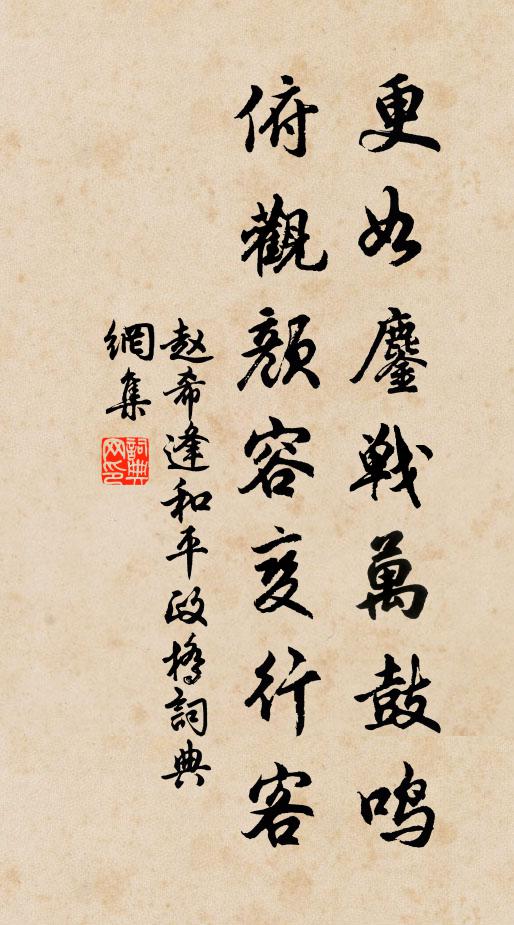 更如鏖戦萬鼓鳴
俯觀顔容变行客
赵希逢和平政橋詞典
網集
詞典
网印